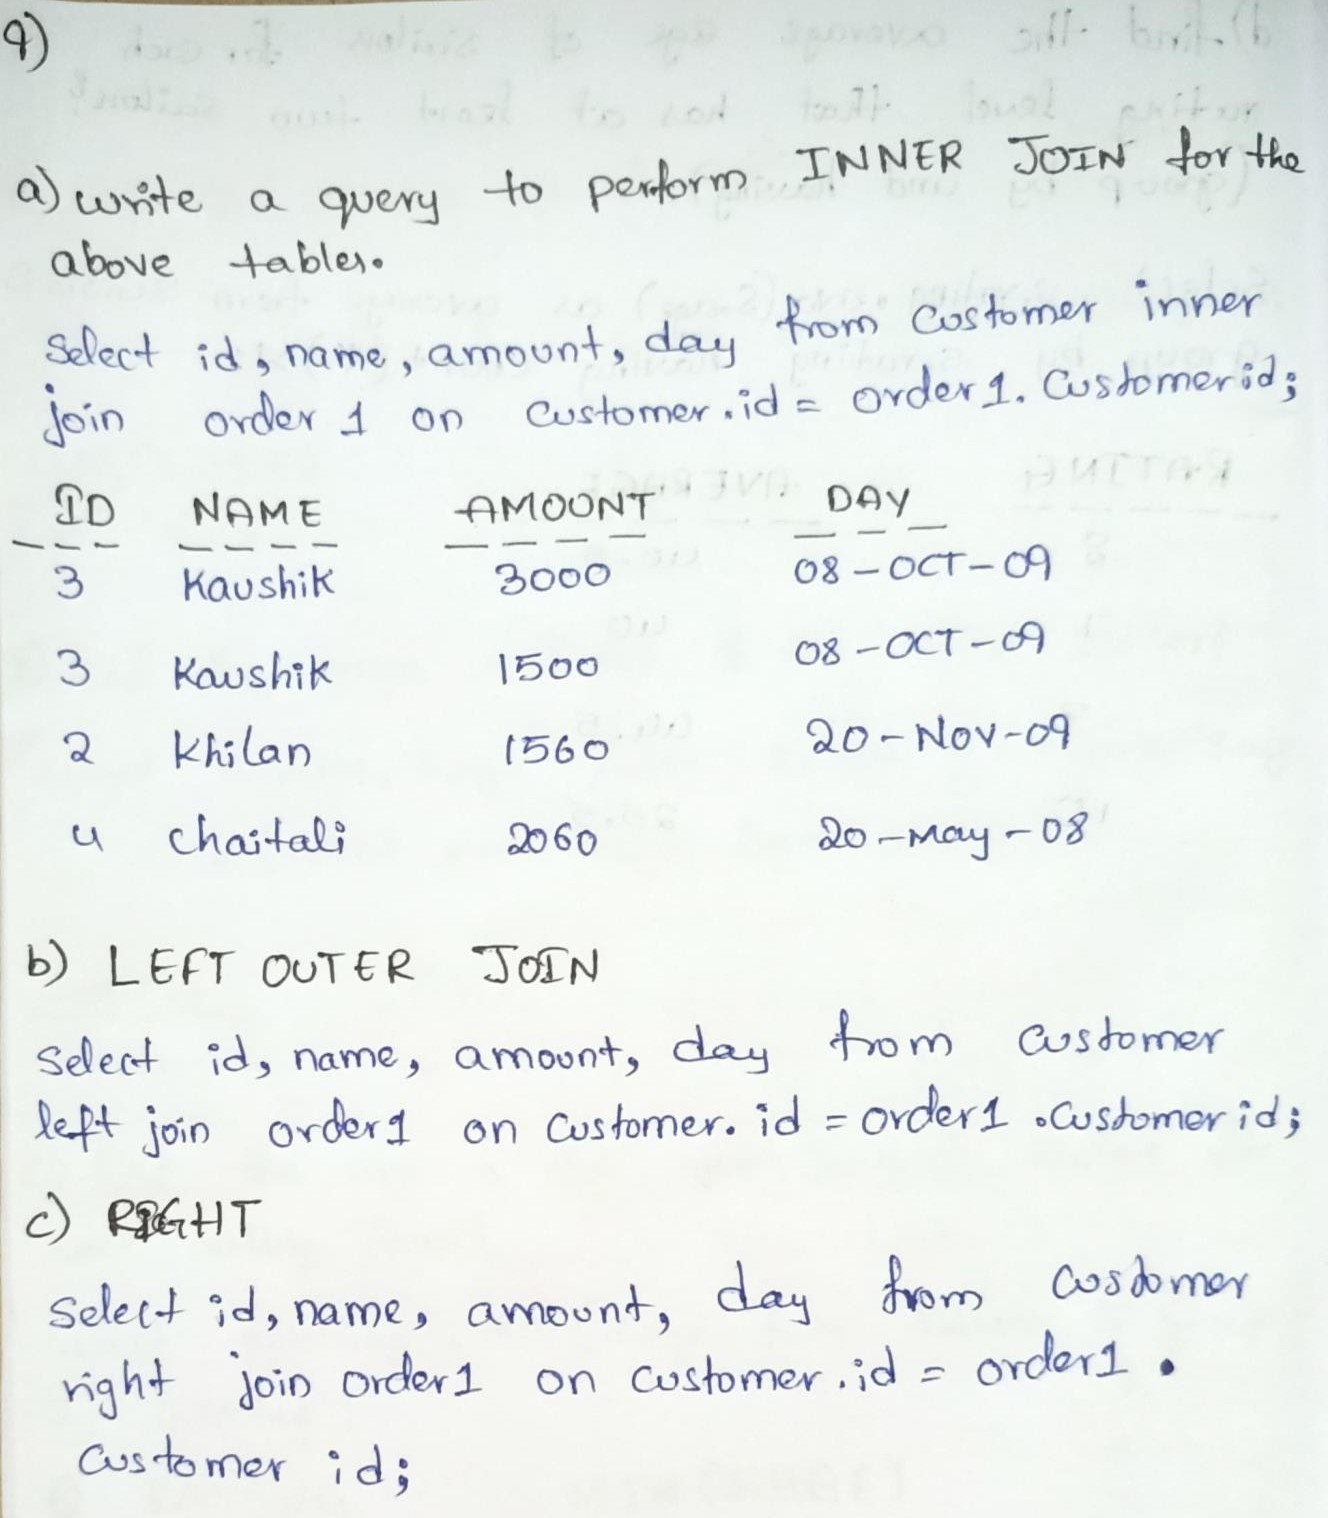 9)
a) write a query to perform INNER JOIN for the
above tables.
Select id, name, amount, day from Customer inner
join order 1 on Customer.id = order1.Customerid;
ID NAME AMOUNT DAY
3 Kaushik 3000 08-OCT-09
3 Kaushik 1500 08-OCT-09
2 Khilan 1560 20-Nov-09
4 Chaitali 2060 20-May-08
b) LEFT OUTER JOIN
Select id, name, amount, day from Customer
left join order1 on Customer.id = order1.Customer id;
c) RIGHT
Select id, name, amount, day from Customer
right join order1 on Customer.id = order1.
Customer id;